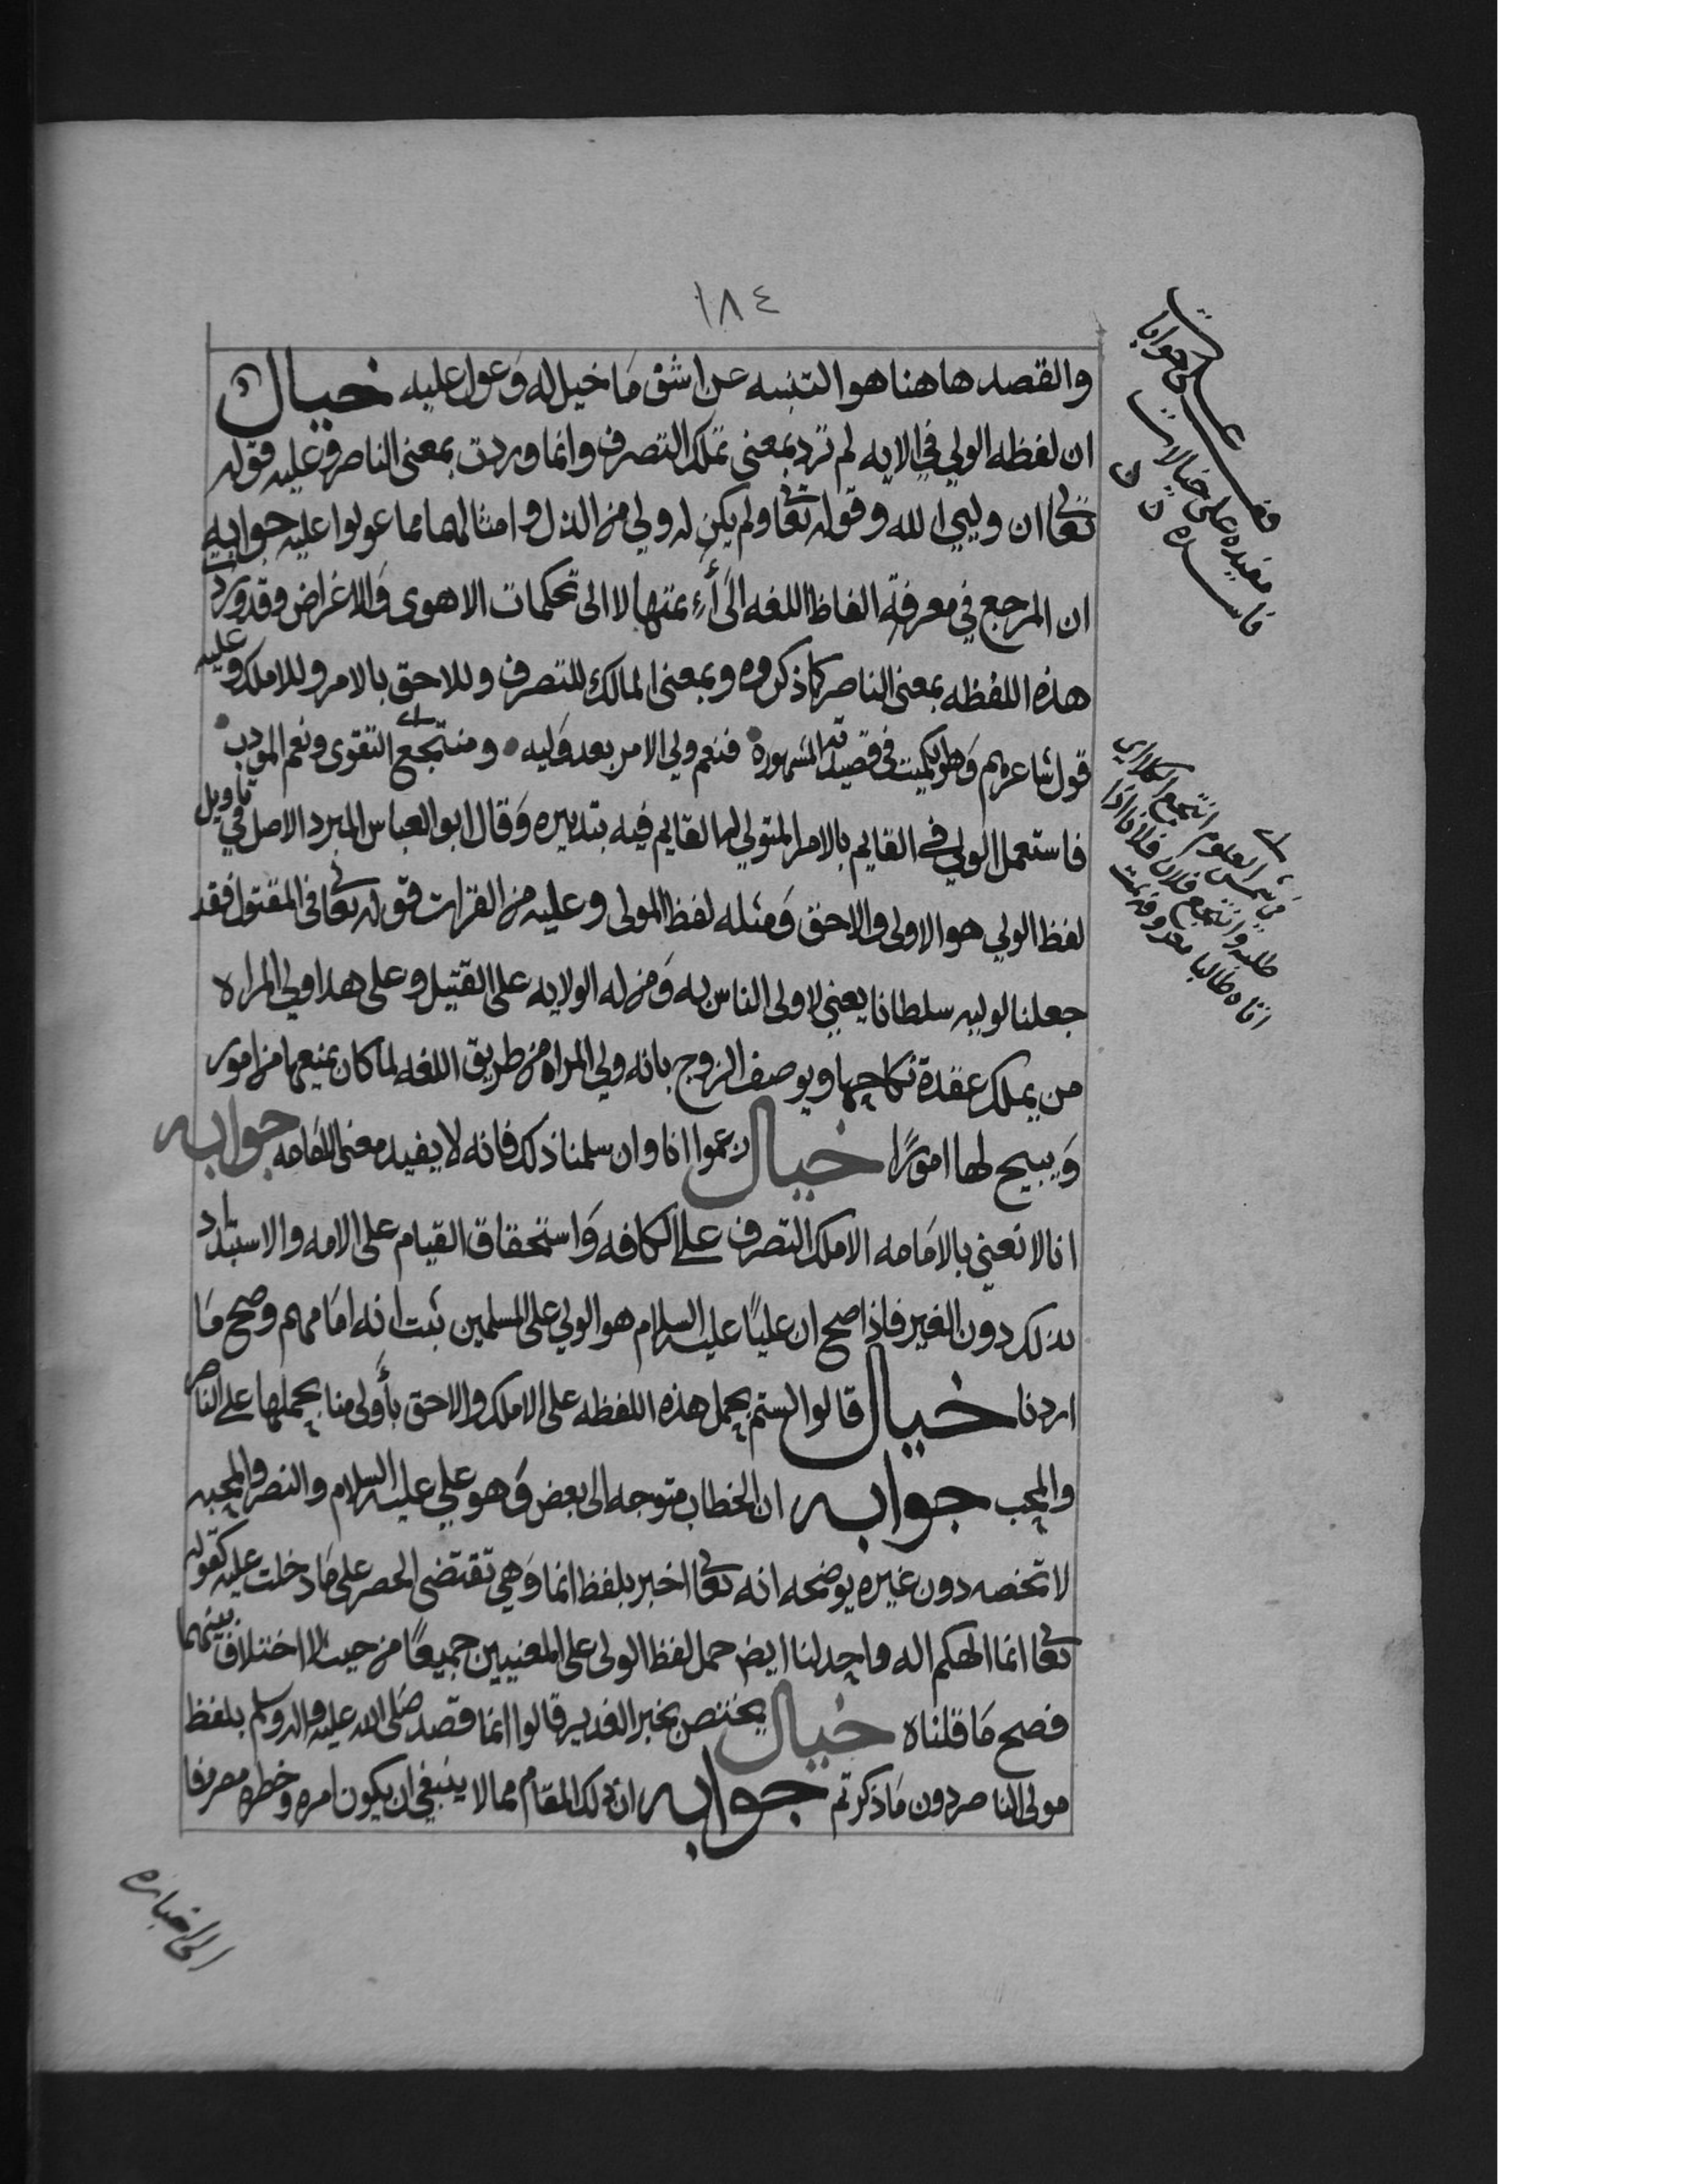 ١٨٤
والقصد هاهنا هو التنبيه عن اشق ما خيل له وعول عليه خيال
ان لفظه الولي في الايه لم ترد بمعنى تملك التصرف وانما وردت بمعنى الناصر وعليه قوله
تعالى ان وليي الله وقوله تعالى ولم يكن له ولي من الذل وامثالهما مما عولوا عليه جوابه
ان المرجع في معرفة الفاظ اللغه الى أءِمتها لا الى تحكمات الاهوى والاغراض وقد وردت
هذه اللفظه بمعنى الناصر كما ذكروه وبمعنى المالك للتصرف وللاحق بالامر وللاملك وعليه
قول شاعرهم وهو الكميت في قصيدته المشهورة فنعم ولي الامر بعد وليه ومنتجع التقوى ونعم المودب
فاستعمل الولي في القايم بالامر المتولي لها القايم فيه بتدبيره وقال ابو العباس المبرد الاصل في تاويل
لفظ الولي هو الاولى والاحق ومثله لفظ المولى وعليه من القرات قوله تعالى في المقتول فقد
جعلنا لوليه سلطانا يعني لاولى الناس به ومن له الولايه على القتيل وعلى هذا ولي المراه
من يملك عقدة نكاحها ويوصف الزوج بانه ولي المراه من طريق اللغه لما كان يمنعها من امور
ويبيح لها امورًا خيال زعموا انا وان سلمنا ذلك فانه لا يفيد معنى الامامه جوابه
انا لا نعني بالامامه الا ملك التصرف على الكافه واستحقاق القيام على الامه والاستبداد
بذلك دون الغير فاذا صح ان عليًا عليه السلام هو الولي على المسلمين ثبت انه امامهم وصح ما
اردنا خيال قالوا لستم بحمل هذه اللفظه على الاملك والاحق بأولى منا بحملها على الناصر
والمحب جوابه ان الخطاب متوجه الى بعض وهو علي عليه السلام والنصر والمحبه
لا تخصه دون غيره يوضحه انه تعالى اخبر بلفظ انما وهي تقتضى الحصر على ما دخلت عليه كقوله
تعالى انما الهكم اله واحد لنا ايض حمل لفظ الولى على المعنيين جميعًا من حيث لا اختلاف بينهما
فصح ما قلناه خيال يختص بخبر الغدير قالوا انما قصد صلى الله عليه واله وسلم بلفظ
مولى الناصر دون ما ذكرتم جوابه ان ذلك المقام مما لا ينبغي ان يكون امره وخطره مصروفا
الى اخباره
جوابات
مفيده على خيالات
فاسده
من شمس العلوم انتجع الكلا اي
طلبه وانتجع فلان فلانا اذا
اتاه طالبا معروفه تمت